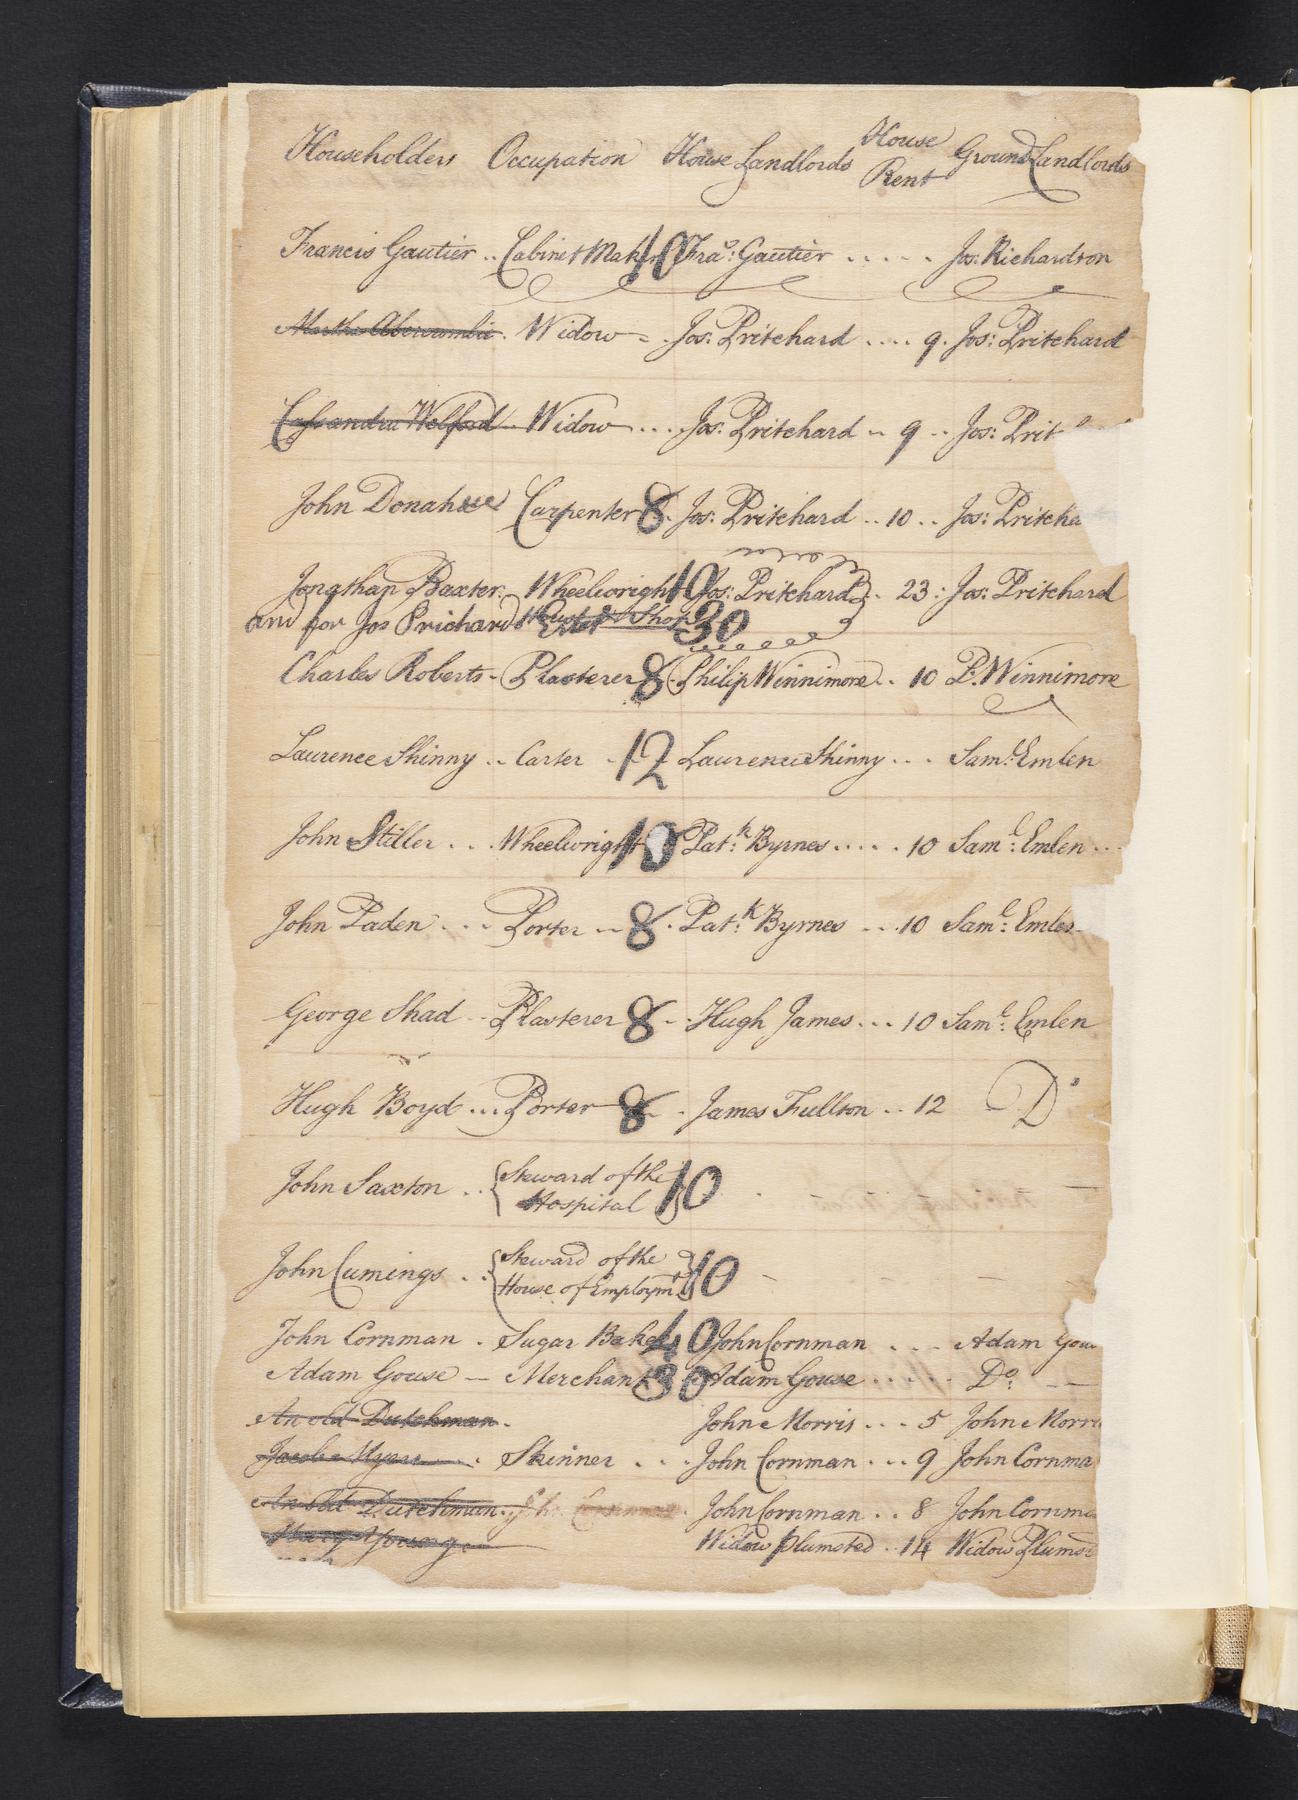 Householders Occupation House Landlords House Rent Ground Landlords
Francis Gautier .. Cabinet Maker 10 Fra.s Gautier ..... Jos. Richardson
Martha Abercrombie. Widow -. Jos: Pritchard .... 9. Jos: Pritchard
Cassandra Welford - Widow .... Jos: Pritchard .. 9 .. Jos: Prit
John Donahue Carpenter 8. Jos: Pritchard .. 10 .. Jos: Pritcha
Jonathan Baxter. Wheelwright 10 Jos: Pritchard .. 23: Jos: Pritchard
and for Jos Prichard Estt Shop 30
Charles Roberts - Plasterer 8 Philip Winnimore .. 10 P. Winnimore
Laurence Shinny .. Carter 12 Laurence Shinny ... Sam.l Emlen
John Stiller ... Wheelwright 10 Pat.k Byrnes ..... 10 Sam.l Emlen ...
John Paden ... Porter .. 8. Pat.k Byrnes ... 10 Sam.l Emlen
George Shad .. Plasterer 8 .. Hugh James ... 10 Sam.l Emlen
Hugh Boyd ... Porter 8 . James Fullton .. 12 Do
John Saxton .. {Steward of the
Hospital} 10
John Cumings .. {Steward of the
House of Employmt} 10
John Cornman . Sugar Baker 40 John Cornman ... Adam Gou
Adam Gouse - Merchant 30 Adam Gouse ..... Do: -
An old Dutchman. John Morris ... 5 John Morri
Jacob Myers . Skinner ... John Cornman ... 9 John Cornma
An old Dutchman. Jno. Cornman John Cornman .. 8 John Cornma
Mary Young Widow Plumsted .. 14 Widow Plumst